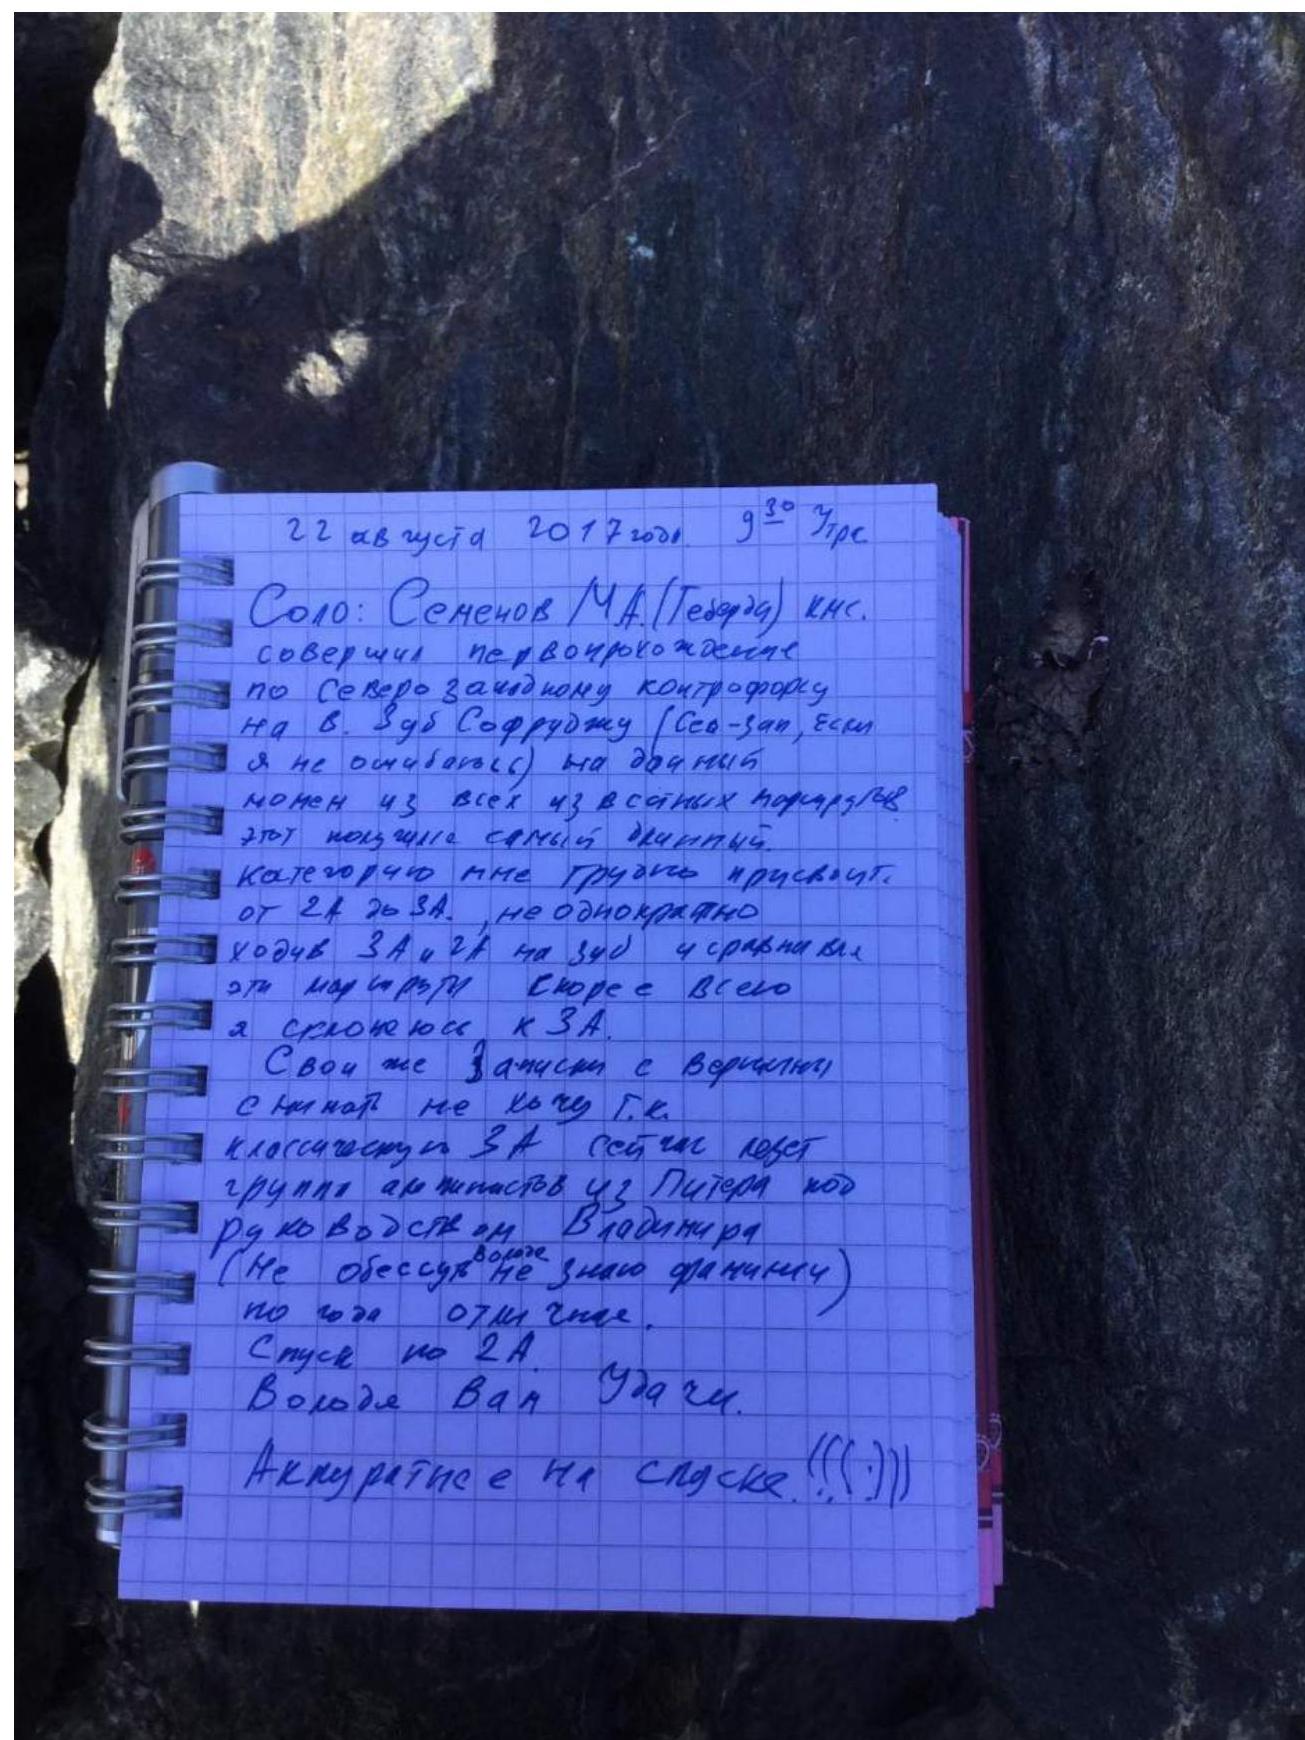 22 августа 2017 года. 9 30 Утра
Соло: Семенов М.А. (Теберда) кмс.
совершил первопрохождение
по Северо западному контрфорсу
на в. Зуб Софруджу (Сев-зап, если
я не ошибаюсь) на данный
момен из всех известных маршрутов
этот получился самый длинный.
категорию мне трудно присвоит.
от 2А до 3А., не однократно
ходив 3А и 2А на зуб и сравнивая
эти маршруты скорее всего
я склоняюсь к 3А.
Свои же Записки с вершины
снимать не хочу т.к.
классическую 3А сейчас лезет
группа альпинистов из Питера под
руководством Владимира
(Не обессудь Володя не знаю фамилии)
погода отличная.
Спуск по 2А.
Володя Вам Удачи.
Аккуратнее на спуске.!!!(:)))